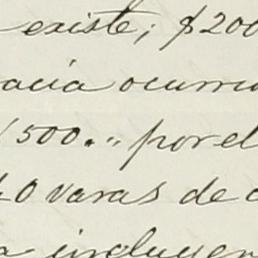 existe; $200
acia ocurri
1500.„ por el
40 varas de
incluyen